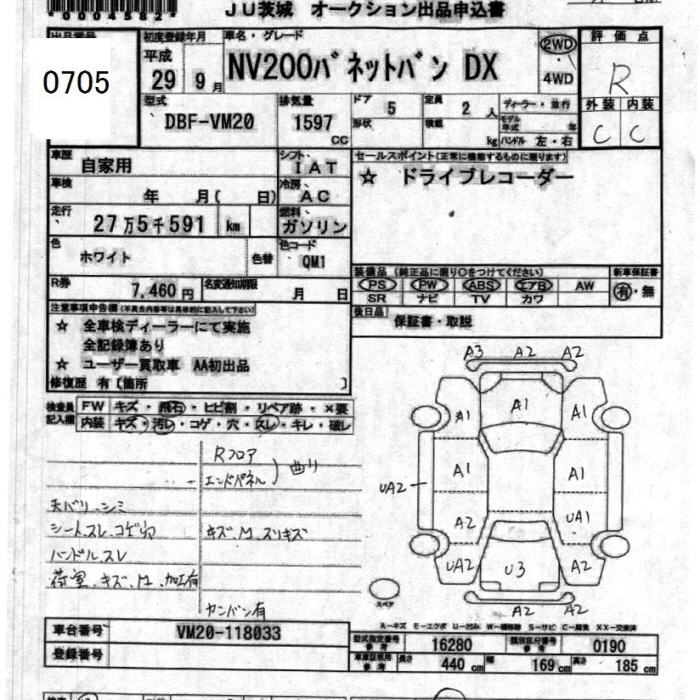 *0004582*
JU茨城 オークション出品申込書
出品番号
0705
初度登録年月
平成
29 9月
車名・グレード
NV200バネットバン DX
2WD
4WD
評価点
R
外装 内装
C C
型式
DBF-VM20
排気量
1597
CC
ドア 5
形状
定員 2 人
積載 kg
ディーラー・並行
モデル年式 年
ハンドル 左・右
車歴
自家用
シフト
IAT
車検
年 月( 日)
冷房
AC
走行
27万5千591 km
燃料
ガソリン
色
ホワイト
色替
色コード
QM1
R券
7,460円
名変通知期限
月 日
セールスポイント(正常に機能するものに限ります)
☆ ドライブレコーダー
装備品 (純正品に限り○をつけてください)
新車保証書
PS PW ABS エアB AW
有・無
SR ナビ TV カワ
後日品
保証書・取説
注意事項申告欄(不具合内容等は具体的に記入して下さい)
☆ 全車検ディーラーにて実施
全記録簿あり
☆ ユーザー買取車 AA初出品
修復歴 有〔箇所 〕
検査員記入欄
FW キズ・飛石・ヒビ割・リペア跡・×要
内装 キズ・汚レ・コゲ・穴・スレ・キレ・破レ
Rフロア
エンドパネル
曲り
天バリ シミ
シートスレ、コゲ穴
キズ、M、スリキズ
ハンドルスレ
荷室、キズ、M、加工有
カンバン有
A3 A2 A2
A1 A1 A1
A1 A1
UA2
A2 UA1
UA2 U3 A2
A2 A2
スペア
A-キズ E-エクボ U-凹ミ W-補修跡 S-サビ C-腐食 XX-交換済
車台番号
VM20-118033
登録番号
型式指定番号
参考
16280
類別区分番号
参考
0190
車庫証明用
参考
長さ 440 cm
幅 169 cm
高さ 185 cm